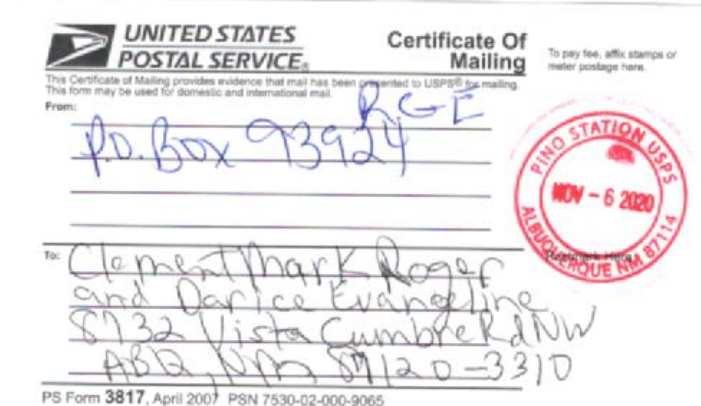 UNITED STATES
POSTAL SERVICE®
Certificate Of
Mailing
To pay fee, affix stamps or
meter postage here.
This Certificate of Mailing provides evidence that mail has been presented to USPS® for mailing.
This form may be used for domestic and international mail.
From:
RGE
P.O. Box 93924
PINO STATION USPS
NOV - 6 2020
ALBUQUERQUE NM 87114
Postmark Here
To:
Clement Mark Roger
and Darice Evangeline
8732 Vista Cumbre Rd NW
ABQ, NM 87120-3310
PS Form 3817, April 2007 PSN 7530-02-000-9065